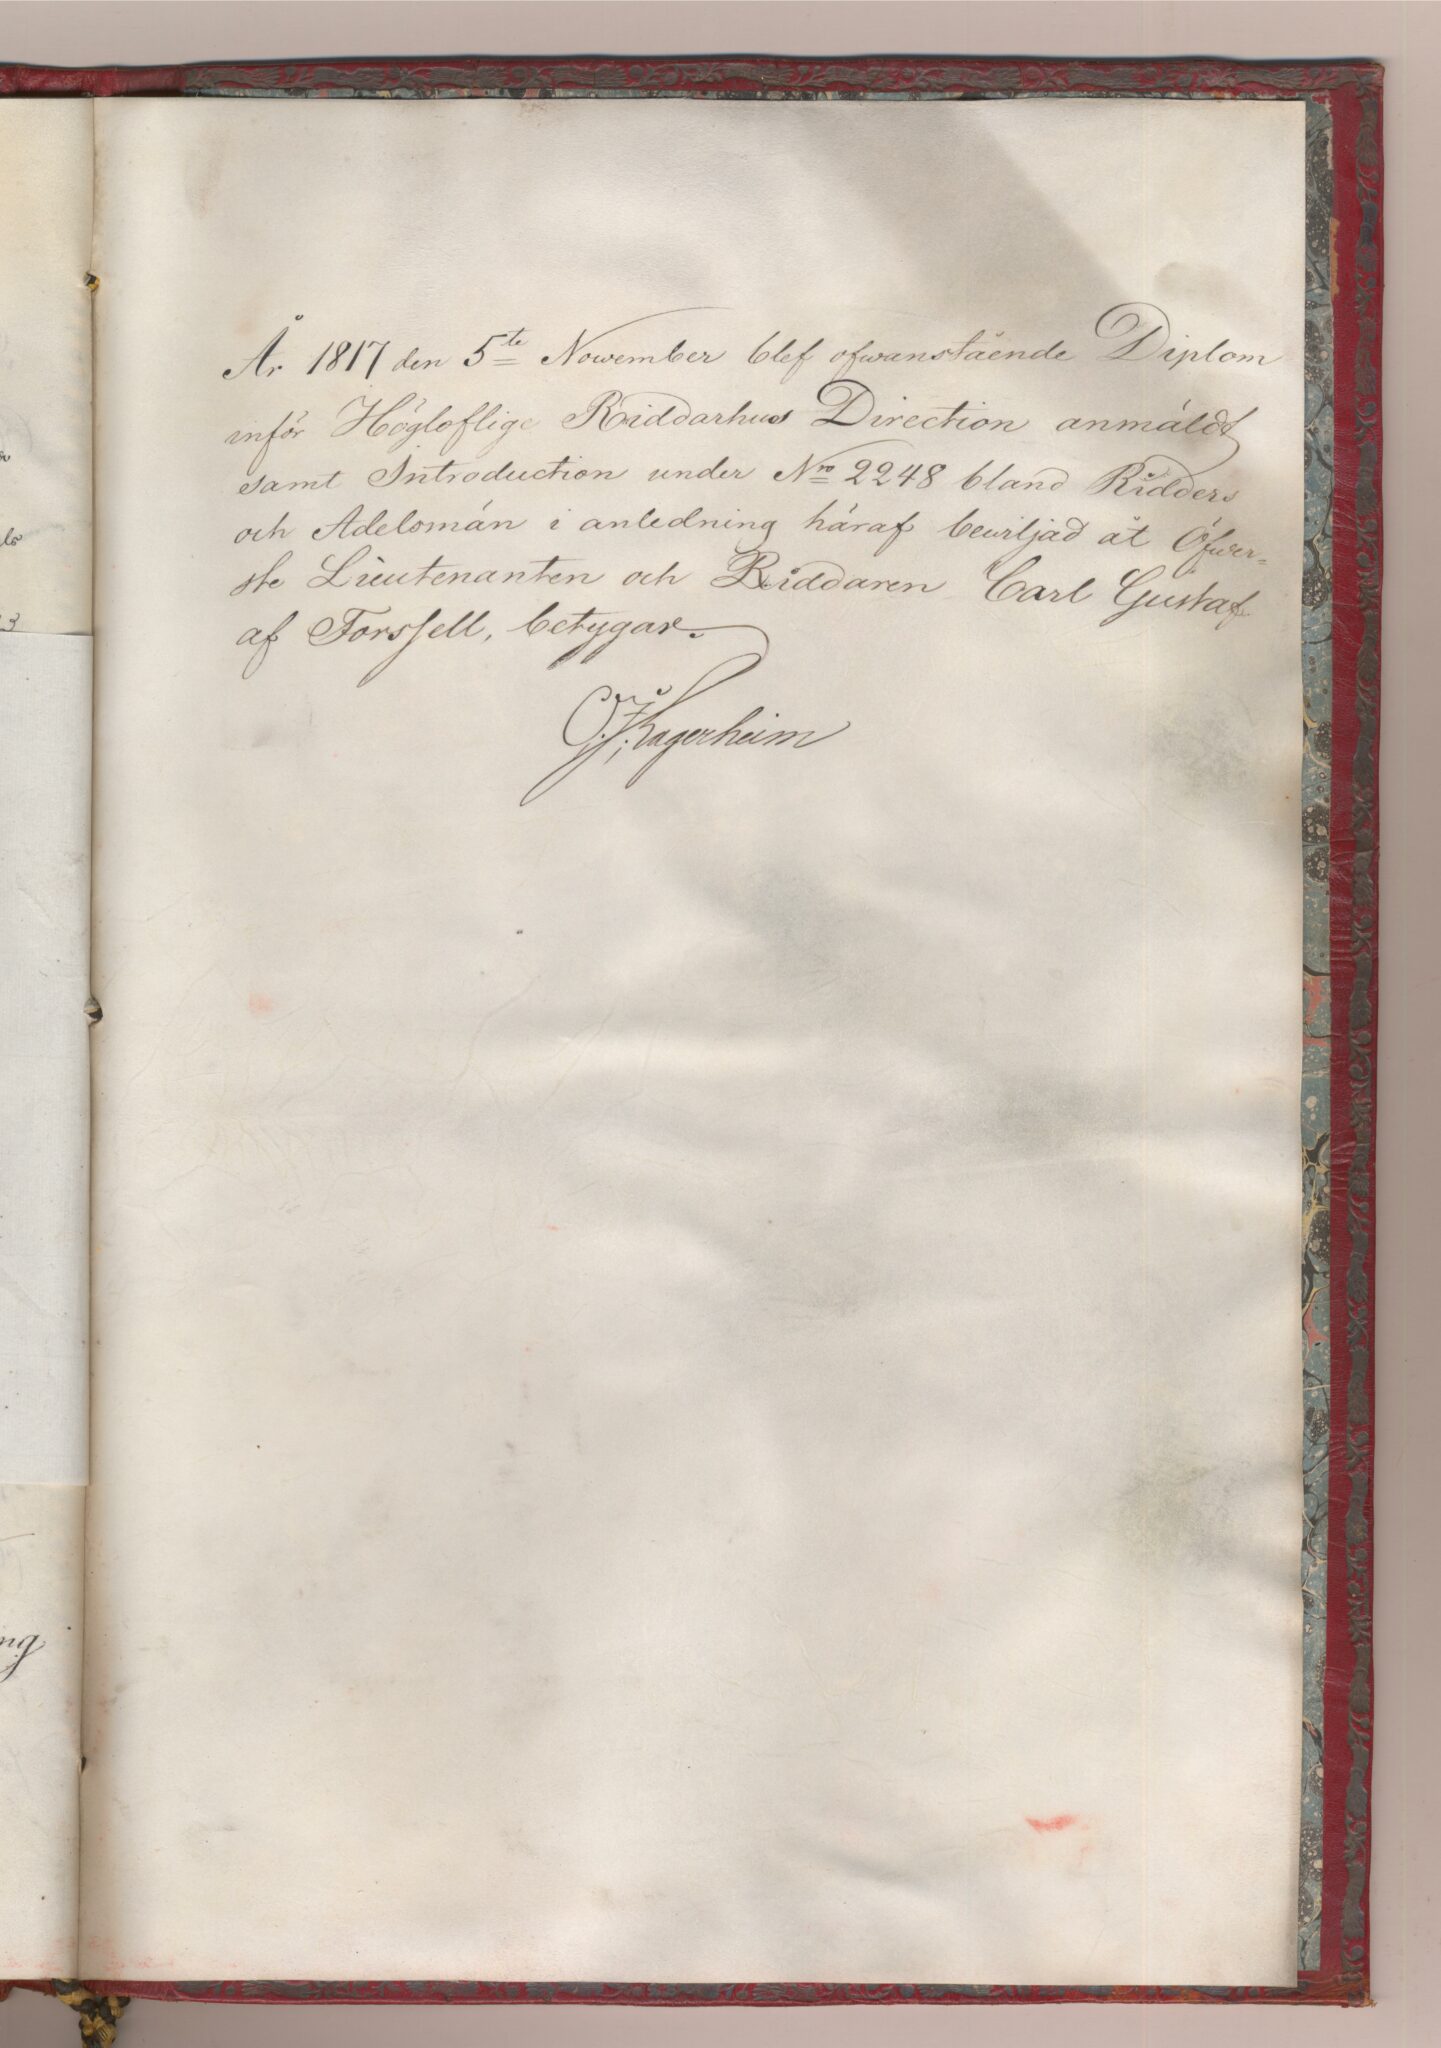 År 1817 den 5te November blef ofwanstående Diplom
inför Högloflige Riddarhus Direction anmäldt
samt Introduction under Nro 2248 bland Ridders
och Adelsmän i anledning häraf bewiljad åt Öfwer-
ste Lieutenanten och Riddaren Carl Gustaf
af Forssell, betygar.